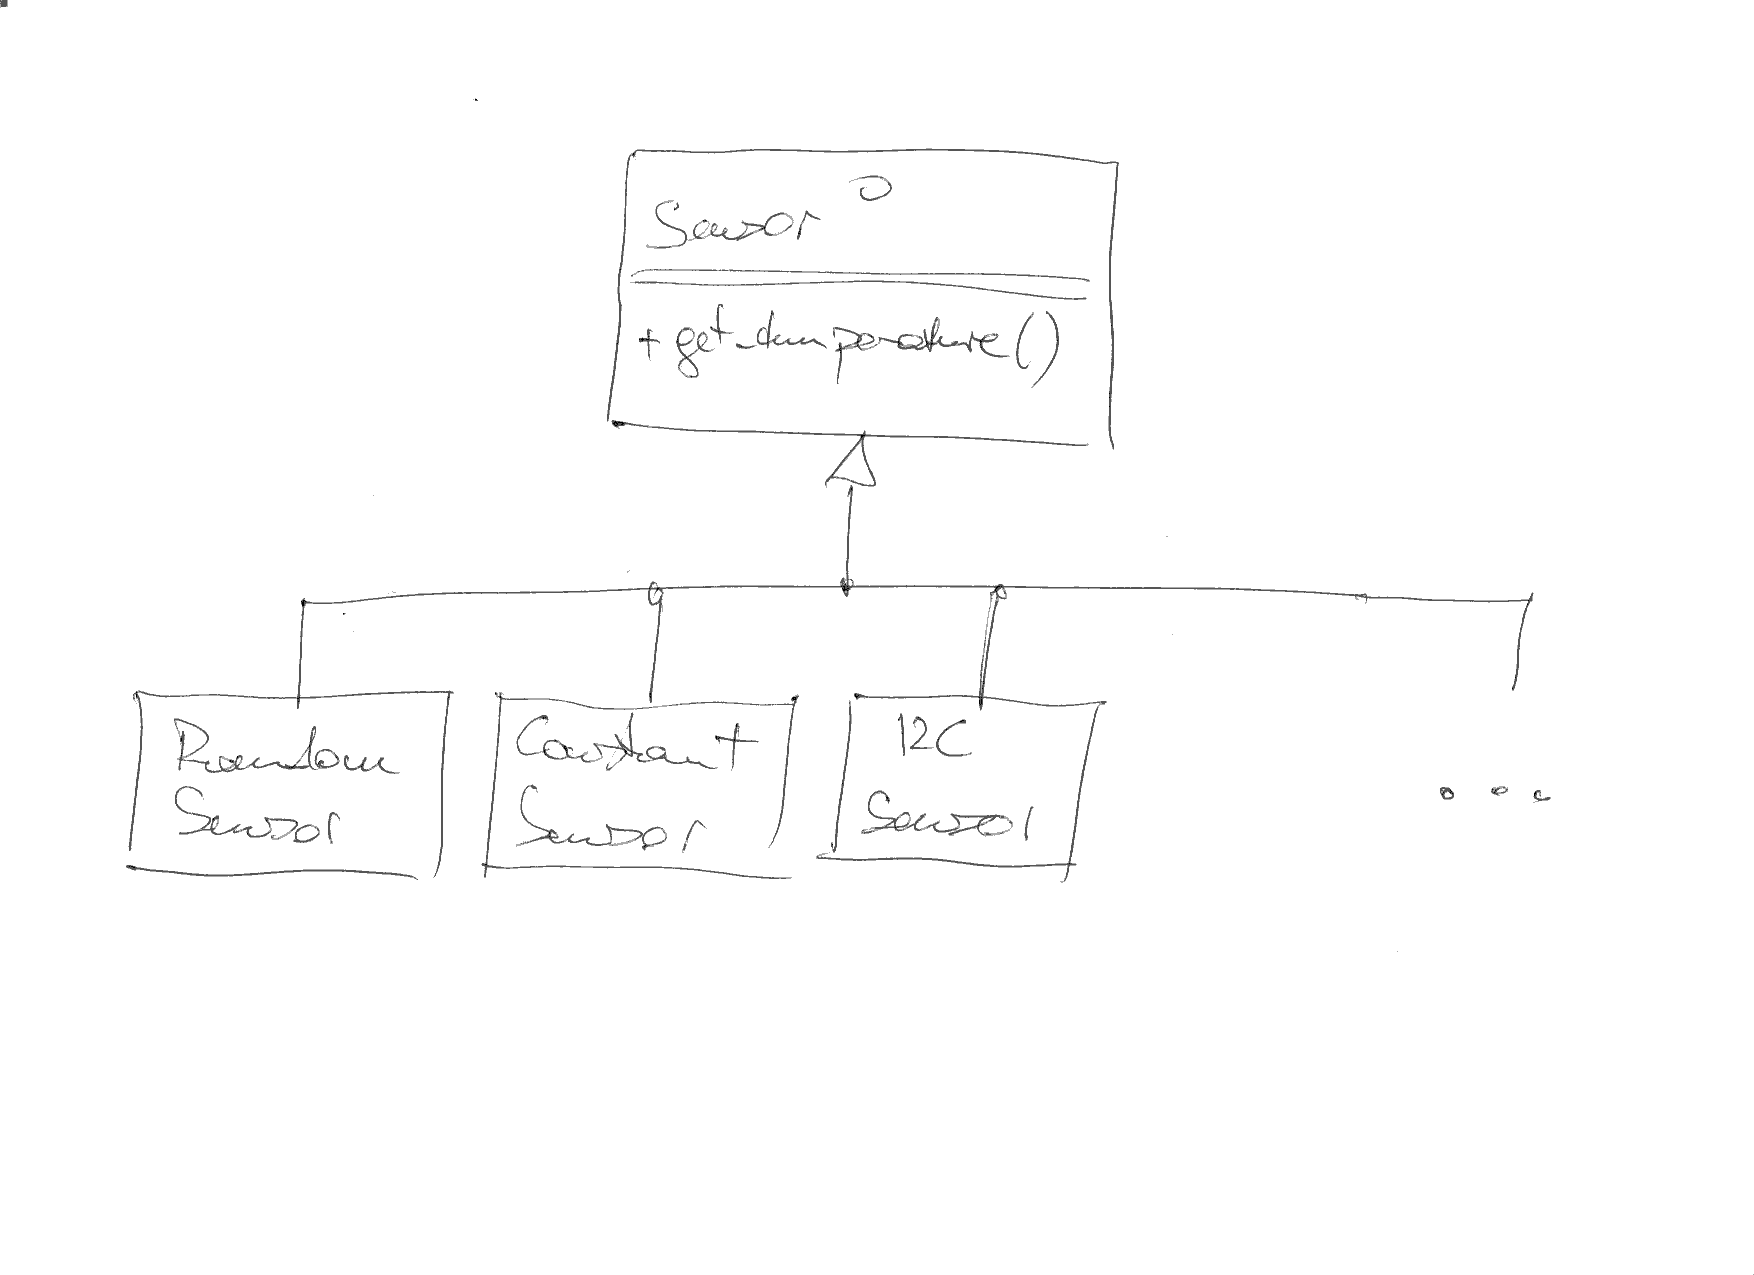 Sensor
+ get_temperature()
Random
Sensor
Constant
Sensor
I2C
Sensor
...